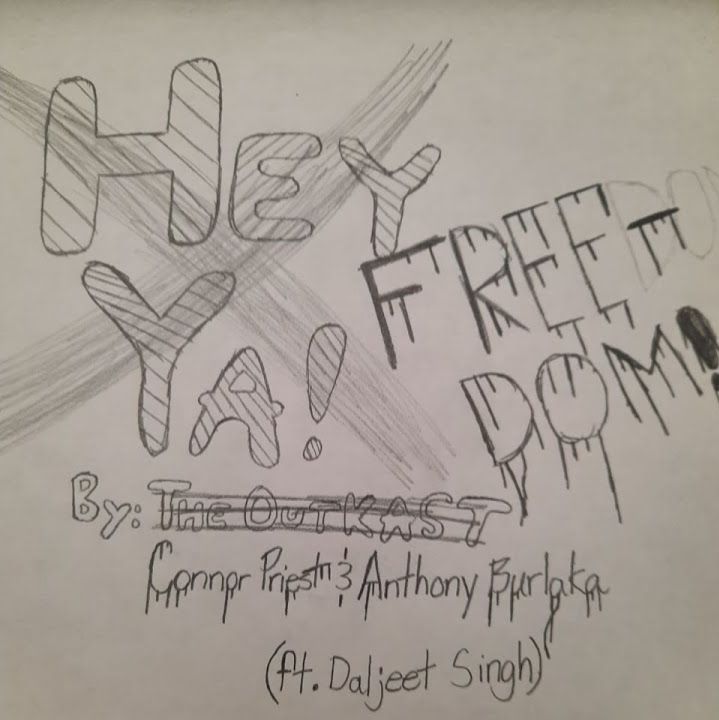 HEY
YA!
FREE
DOM!
By: THE OUTKAST
Connor Priest & Anthony Burlaka
(ft. Daljeet Singh)